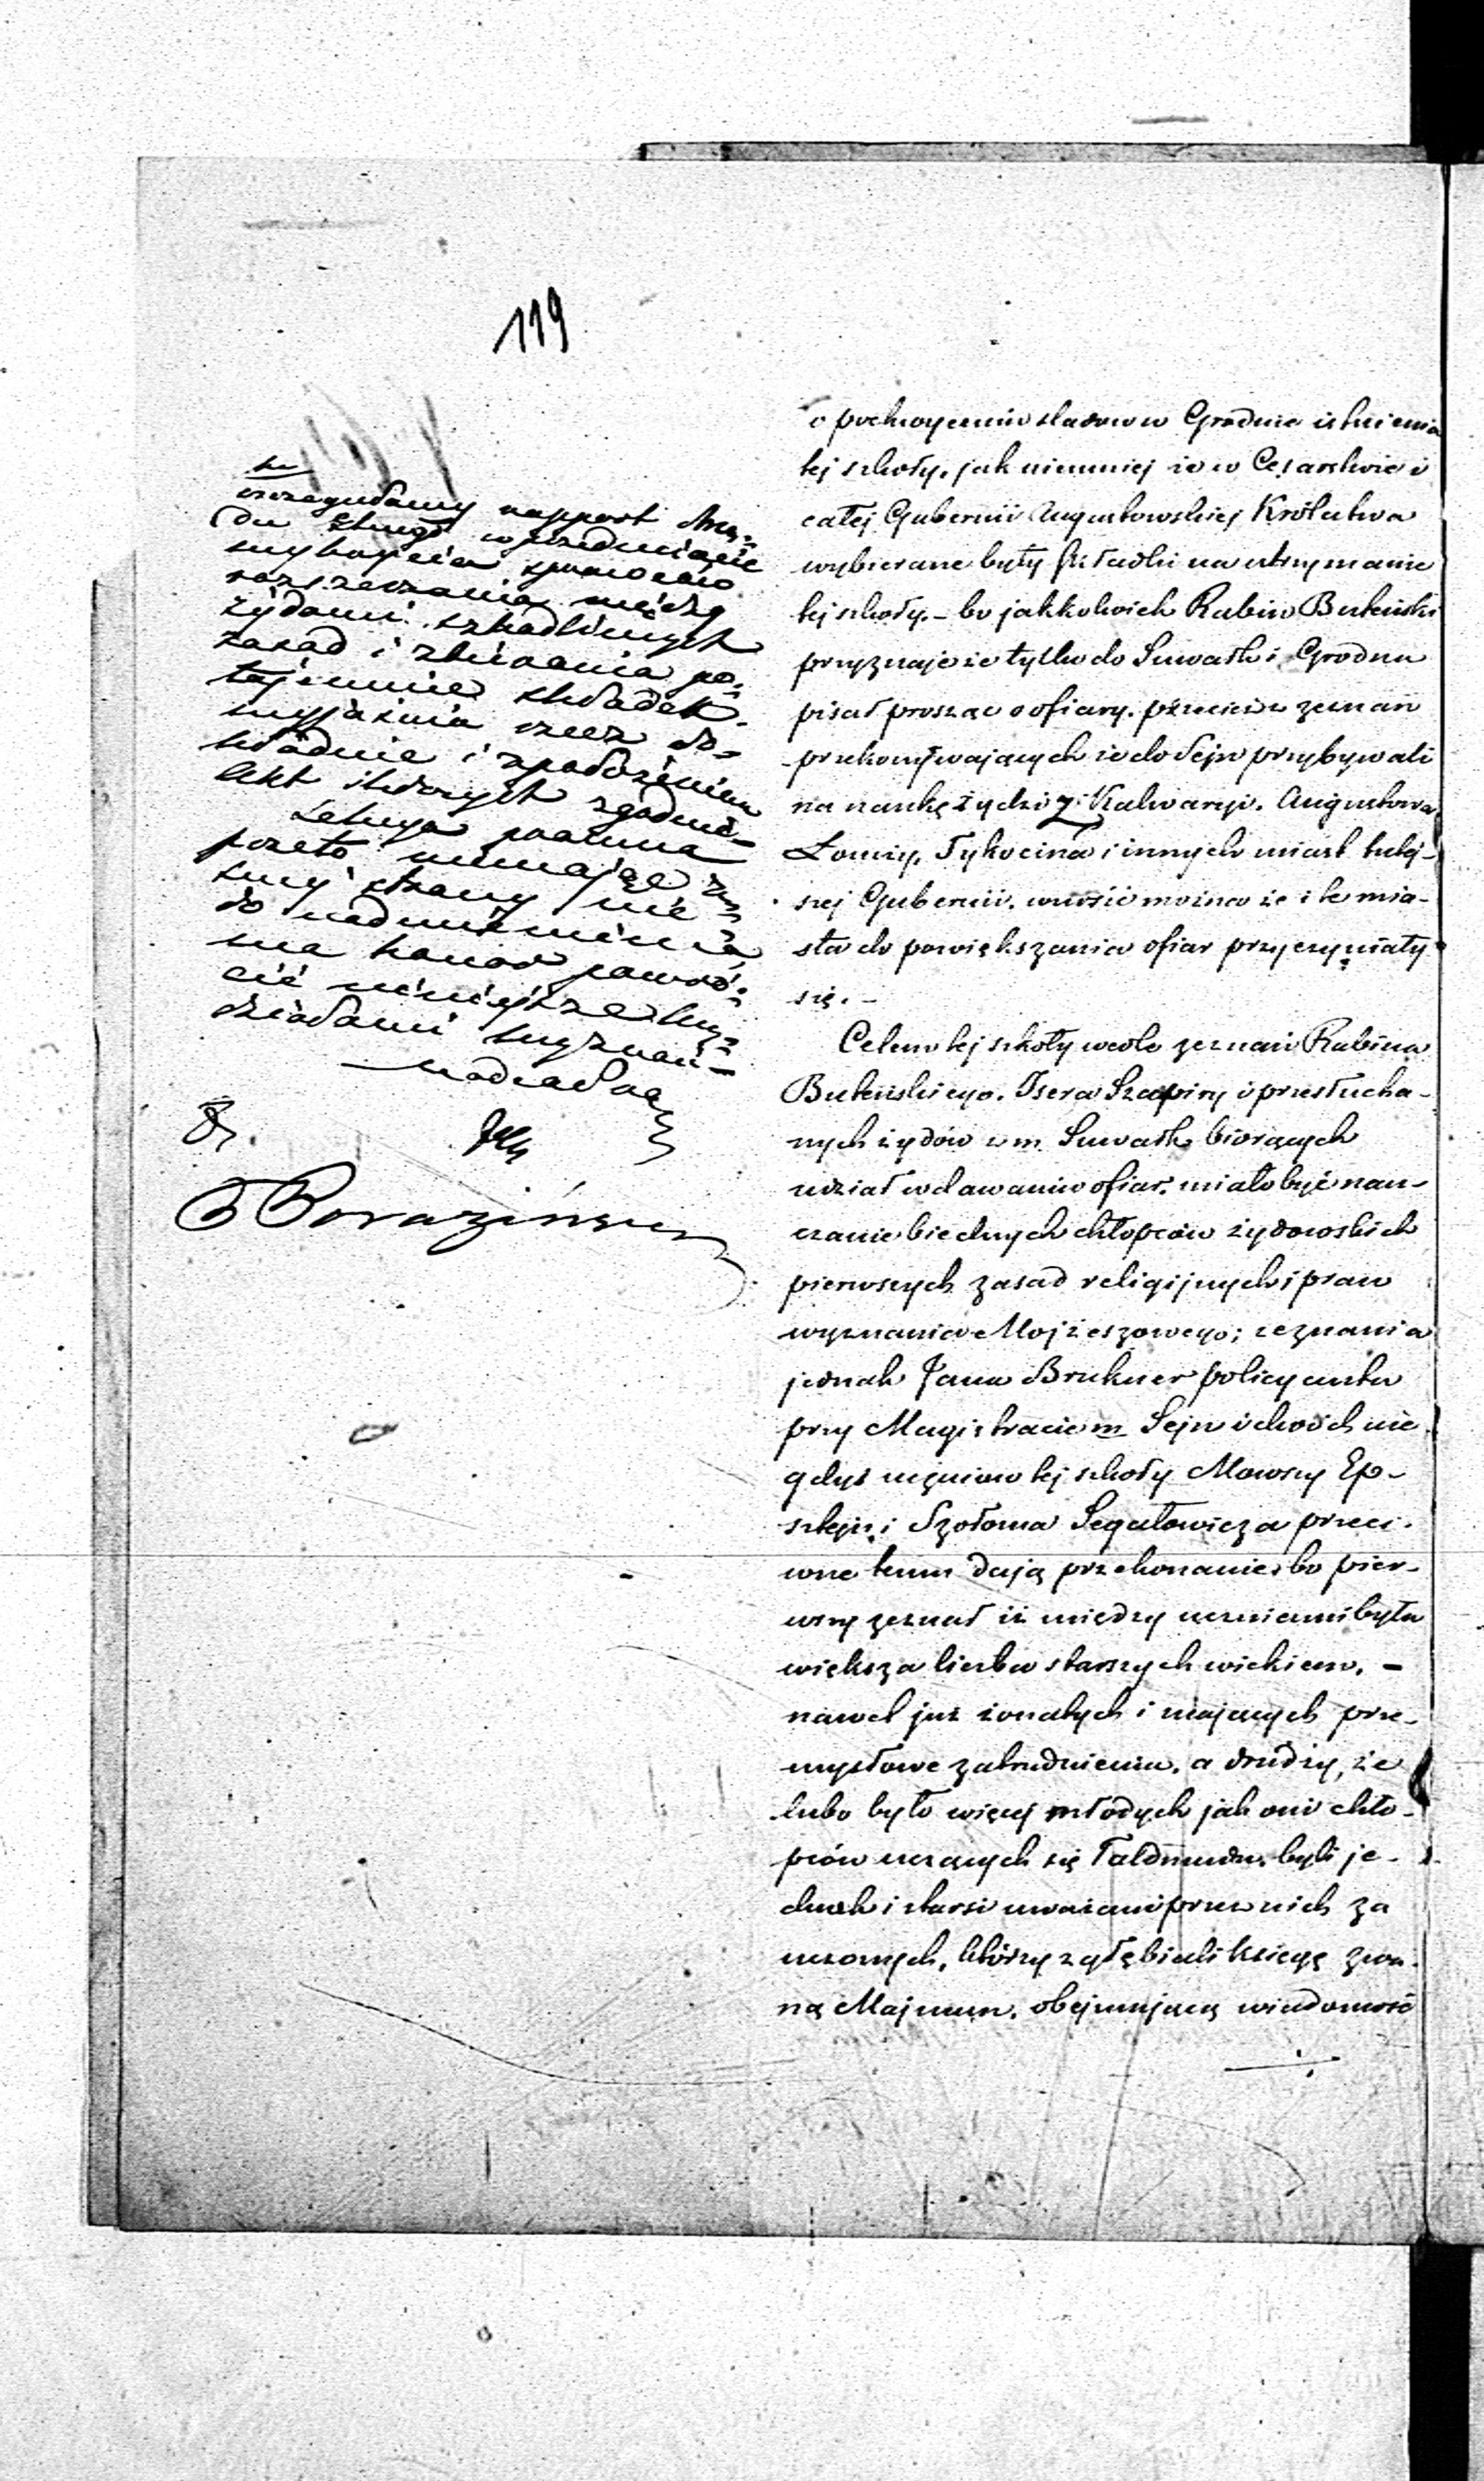 119
szczegułowy rapport Urzę=
du
wykrycia
rozszerzania między
żydami szkodliwych
zasad i zbierania po=
tajemnie składek
wyjaśnia rzecz do=
kładnie i z położeniem
akt z których zgodnie
przeto niemając ze
swej strony nic
do nadmienienia
ma honor powró=
cić niniejsze
działami
nadesłane
o pochwyceniu sladow w Grodnie istnienia
tej szkoły, jak niemniej że w Cesarstwie i
całej Gubernii Augustowskiej Królestwa
wybierane były składki na utrzymanie
tej szkoły. – bo jakkolwiek Rabin Buteński
przyznaje że tylko do Suwałk i Grodna
pisał prosząc o ofiary, przecież z zeznań
przekonywających że do Sejn przybywali
na naukę żydzi z Kalwaryi, Augustowa
Łomży, Tykocina i innych miast tutej-
szej Gubernii, wnosić można że i te mia-
sta do powiększania ofiar przyczyniały
się. –
Celem tej szkoły wedle zeznań Rabina
Buteńskiego, Isera Szapiry i przesłucha-
nych żydów z m. Suwałk biorących
udział w dawaniu ofiar, miało być nau-
czanie biednych chłopców żydowskich
pierwszych zasad religijnych i praw
wyznania Mojżeszowego; zeznania
jednak Jana Brukner policyanta
przy Magistracie m Sejn i dwóch nie
gdyś uczniow tej szkoły Mowszy Ep-
sztejn i Szołoma Segałowicza przeci-
wne temu dają przekonanie, bo pier-
wszy zeznał iż między uczniami była
większa liczba starszych wiekiem, –
nawet już żonatych i mających prze-
mysłowe zatrudnienia, a drudzy, że
lubo było więcej młodych jak oni chło-
pców uczących się Taldmudu, byli je-
dnak i starsi uważani przez nich za
uczonych, którzy zgłębiali księgę zwa-
ną Majmun, obejmującą wiadomość